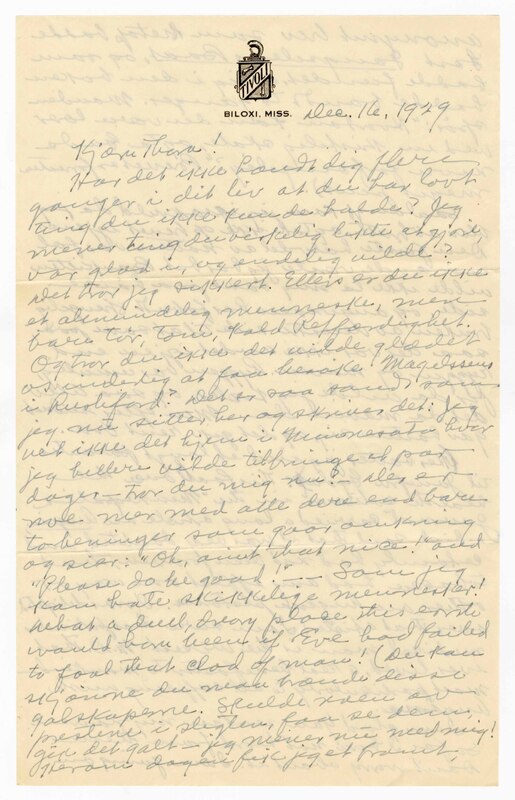 TIVOLI
BILOXI, MISS. Dec. 16, 1929
Kjære Thora!
Har det ikke hændt dig flere
ganger i dit liv at du har lovt
ting du ikke kunde holde? Jeg
mener ting du virkelig likte at gjöre,
var glad i, og endelig vilde?
Det tror jeg sikkert. Ellers er du ikke
et almindelig menneske, men
bare tör, tom, kold Retfærdighet.
Og tror du ikke det vilde glædet
os inderlig at faa besöke Magelssens
i Rushford? Det er saa sandt som
jeg nu sitter her og skriver det: Jeg
vet ikke det hjem i Minnesota hvor
jeg hellere vilde tilbringe et par
dager – tror du mig nu? – Der er
noe mer med alle dere end bare
tobeninger som gaar omkring
og sier: "Oh, aint that nice!" and
"Please do be good!" – Som jeg
kan hate skikkelige mennesker!
What a dull, drary place this earth
would have been if Eve had failed
to fool that clod of man! (Du kan
skjönne du maa brænde disse
galskaperne. Skulde noen av
prestene i slegten faa se dem,
gik det galt – jeg mener nu med mig!
dagen fik jeg et